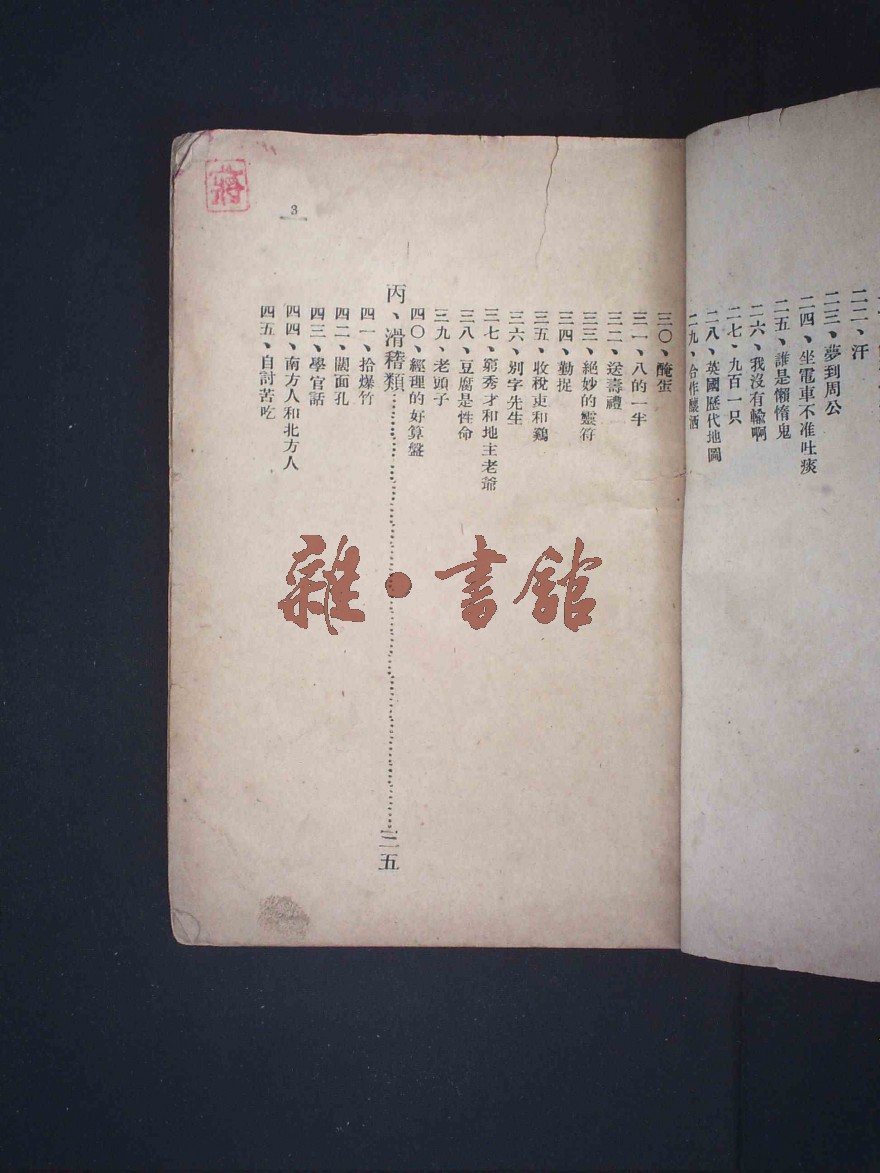 二二、汗
二三、夢到周公
二四、坐電車不准吐痰
二五、誰是懶惰鬼
二六、我沒有輸啊
二七、九百一只
二八、英國歷代地圖
二九、合作釀酒
3
三〇、醃蛋
三一、八的一半
三二、送壽禮
三三、絕妙的靈符
三四、勒捉
三五、收稅吏和鷄
三六、別字先生
三七、窮秀才和地主老爺
三八、豆腐是性命
三九、老頭子
四〇、經理的好算盤
丙、滑稽類……三五
四一、拾爆竹
四二、闊面孔
四三、學官話
四四、南方人和北方人
四五、自討苦吃
雜·書館